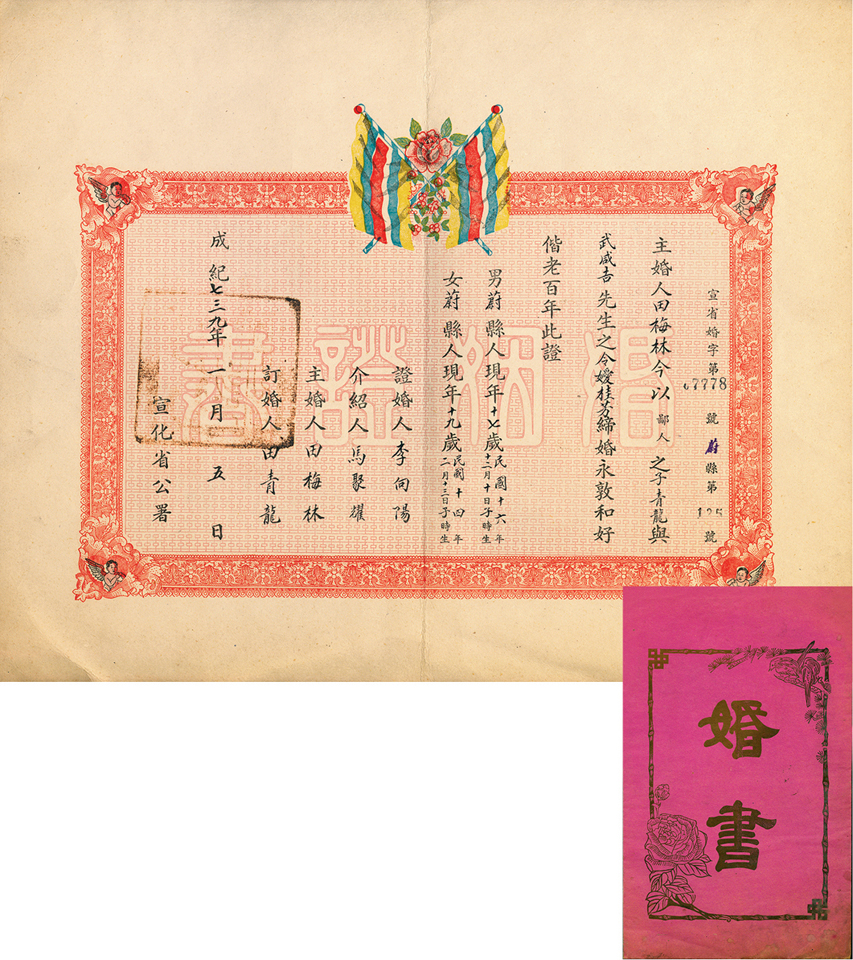 宣省婚字第67778號蔚縣第125號
主婚人田梅林今以鄙人之子青龍與
武威吉先生之令嬡桂芳締婚永敦和好
偕老百年此證
男蔚縣人現年十七歲民國十六年十二月十日子時生
女蔚縣人現年十九歲民國十四年二月十三日子時生
證婚人李向陽
介紹人馬聚耀
主婚人田梅林
訂婚人田青龍
成紀七三九年一月五日
宣化省公署
婚姻證書
婚書